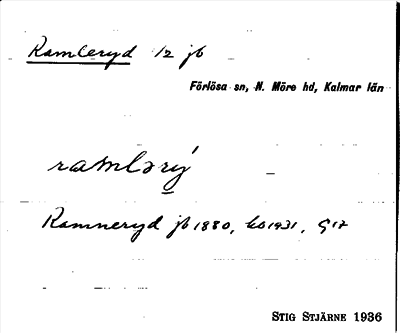 Ramleryd 1/2 jb
Förlösa sn, N. Möre hd, Kalmar län
ramlərý̱
Ramneryd jb 1880, ko 1931, G 17
STIG STJÄRNE 1936